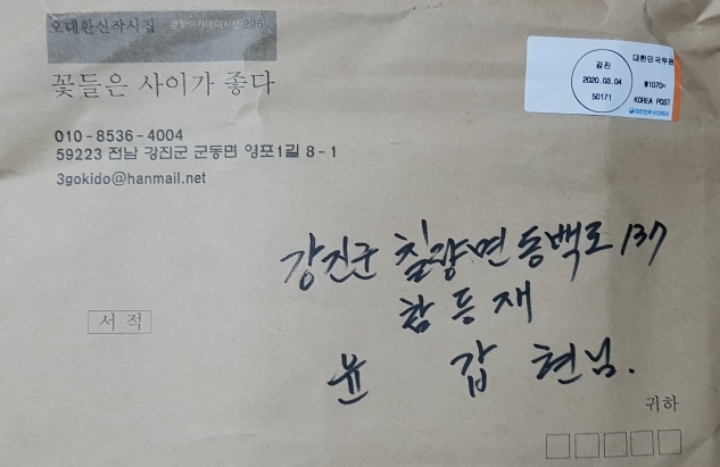 오대환신작시집 문학아카데미시선 296
꽃들은 사이가 좋다
강진
2020.08.04
50171
대한민국우편
₩1070
KOREA POST
대한민국 KOREA
010-8536-4004
59223 전남 강진군 군동면 영포1길 8-1
3gokido@hanmail.net
강진군 칠량면 동백로 137
참 등 재
윤 갑 현님.
서 적
귀하